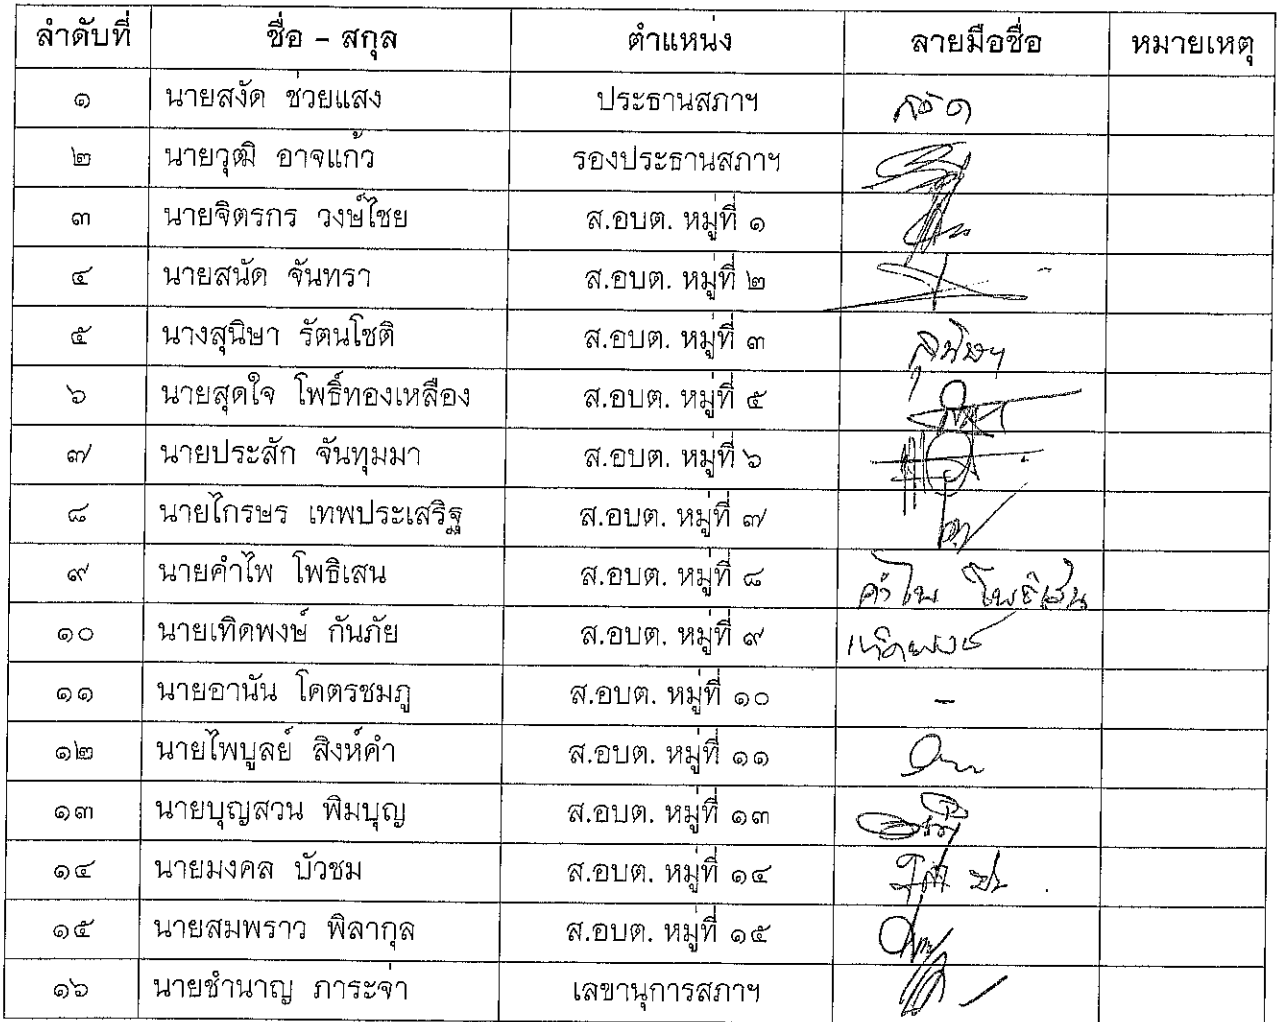 ลำดับที่ ชื่อ - สกุล ตำแหน่ง ลายมือชื่อ หมายเหตุ
๑ นายสงัด ช่วยแสง ประธานสภาฯ สงัด
๒ นายวุฒิ อาจแก้ว รองประธานสภาฯ
๓ นายจิตรกร วงษ์ไชย ส.อบต. หมู่ที่ ๑
๔ นายสนัด จันทรา ส.อบต. หมู่ที่ ๒
๕ นางสุนิษา รัตนโชติ ส.อบต. หมู่ที่ ๓ สุนิษา
๖ นายสุดใจ โพธิ์ทองเหลือง ส.อบต. หมู่ที่ ๕
๗ นายประสัก จันทุมมา ส.อบต. หมู่ที่ ๖
๘ นายไกรษร เทพประเสริฐ ส.อบต. หมู่ที่ ๗
๙ นายคำไพ โพธิเสน ส.อบต. หมู่ที่ ๘ คำไพ โพธิเสน
๑๐ นายเทิดพงษ์ กันภัย ส.อบต. หมู่ที่ ๙ เทิดพงษ์
๑๑ นายอานัน โคตรชมภู ส.อบต. หมู่ที่ ๑๐ -
๑๒ นายไพบูลย์ สิงห์คำ ส.อบต. หมู่ที่ ๑๑
๑๓ นายบุญสวน พิมบุญ ส.อบต. หมู่ที่ ๑๓
๑๔ นายมงคล บัวชม ส.อบต. หมู่ที่ ๑๔
๑๕ นายสมพราว พิลากุล ส.อบต. หมู่ที่ ๑๕
๑๖ นายชำนาญ ภาระจ่า เลขานุการสภาฯ